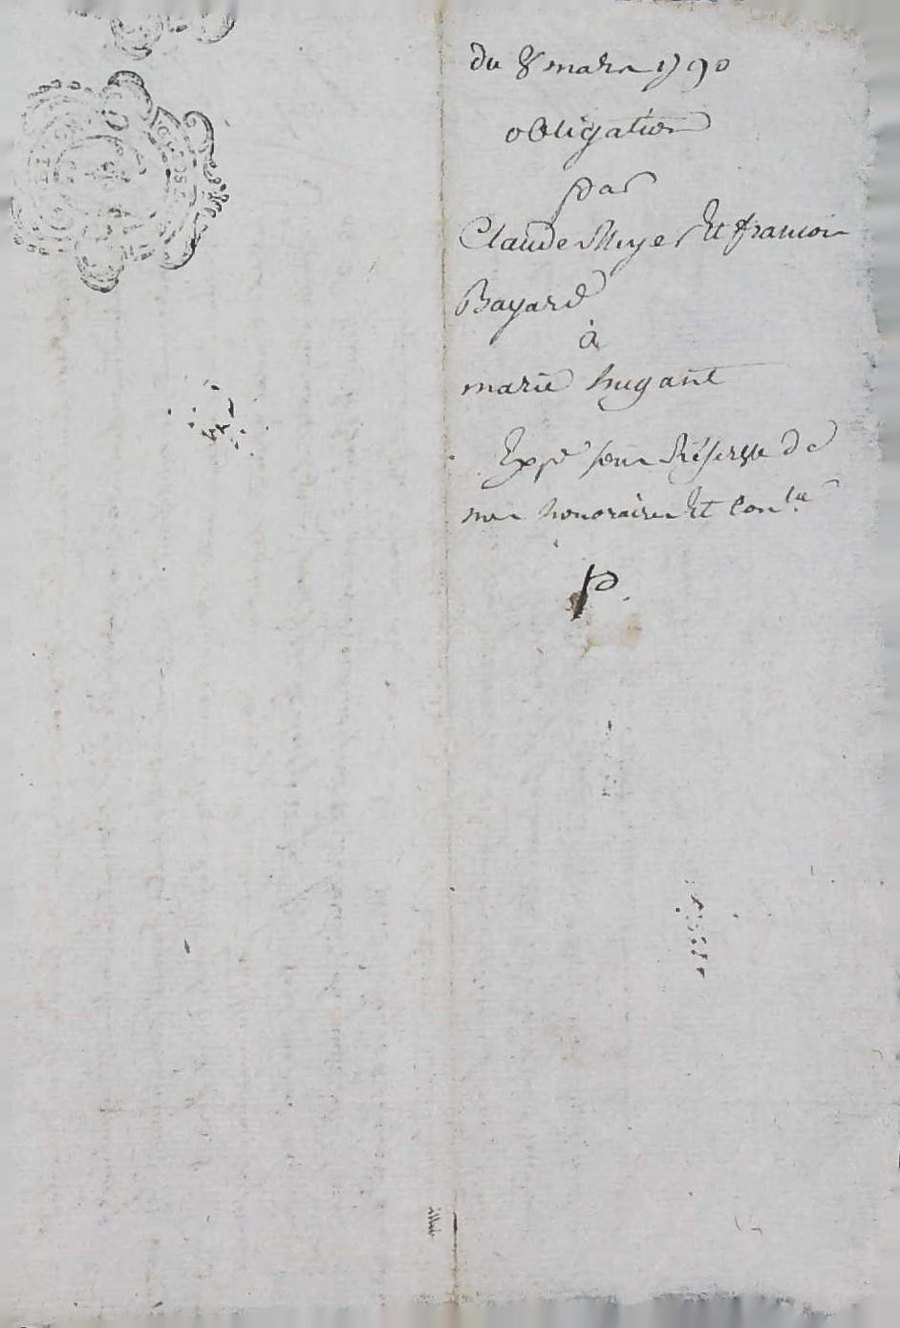 du 8 mars 1790
obligation
par
Claude Meyer Et francois
Bayard
à
marie hugant
Exp.é sous Réserve de
mes honoraires Et Con.le
P.